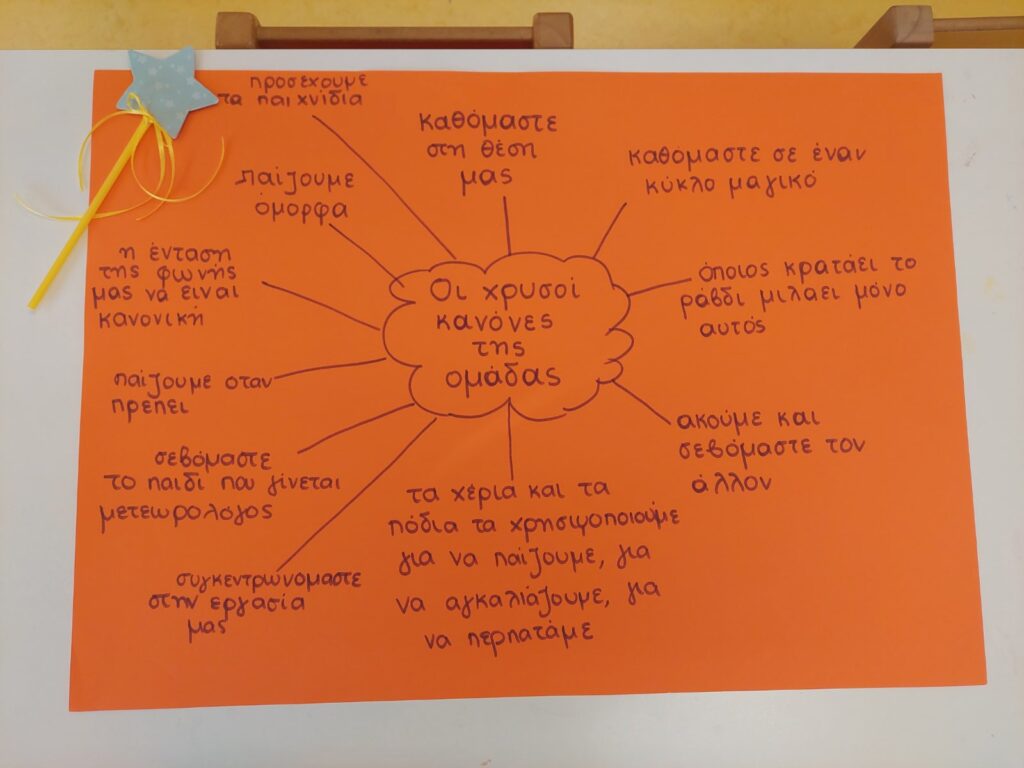 Οι χρυσοί
κανόνες
της
ομάδας
προσέχουμε
τα παιχνίδια
καθόμαστε
στη θέση
μας
καθόμαστε σε έναν
κύκλο μαγικό
όποιος κρατάει το
ράβδι μιλάει μόνο
αυτός
ακούμε και
σεβόμαστε τον
άλλον
τα χέρια και τα
πόδια τα χρησιμοποιούμε
για να παίζουμε, για
να αγκαλιάζουμε, για
να περπατάμε
συγκεντρωνομαστε
στην εργασία
μας
σεβόμαστε
το παιδί που γίνεται
μετεωρολόγος
παίζουμε οταν
πρέπει
η ένταση
της φωνής
μας να ειναι
κανονική
παίζουμε
όμορφα